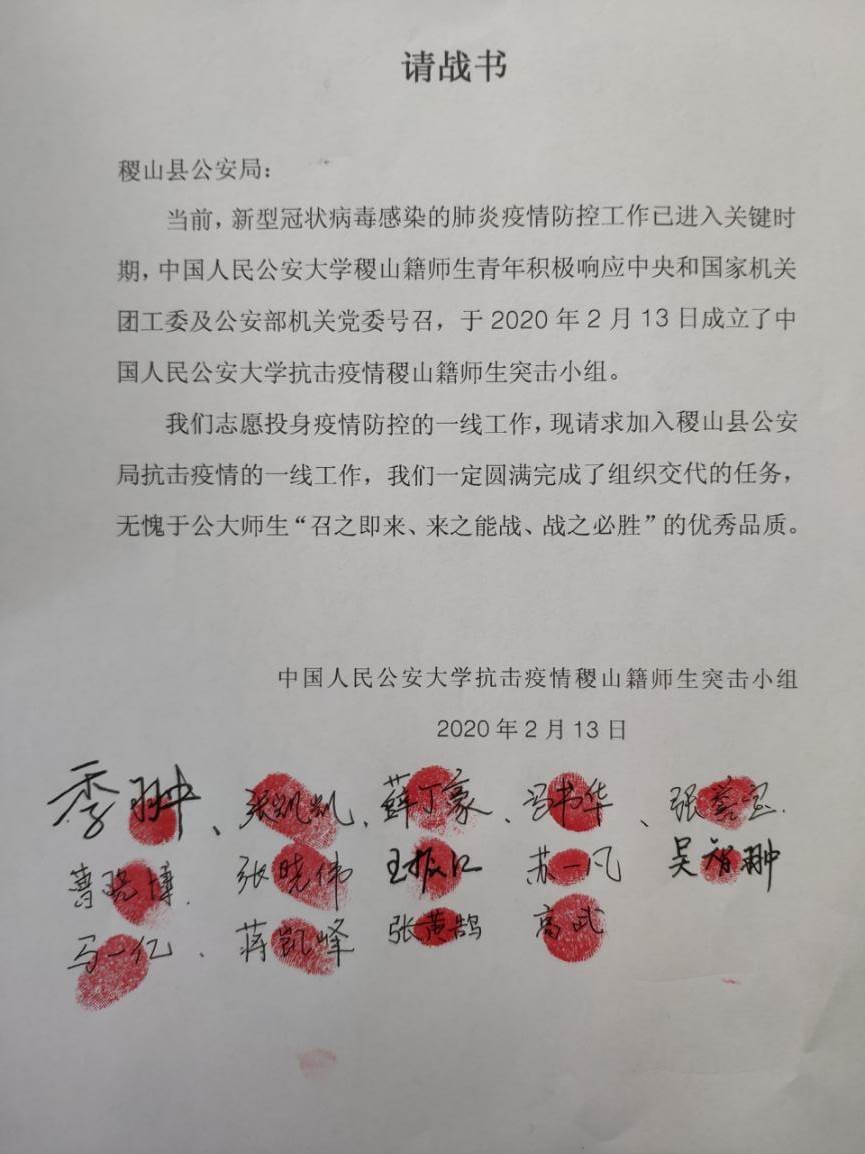 请战书
稷山县公安局：
当前，新型冠状病毒感染的肺炎疫情防控工作已进入关键时
期，中国人民公安大学稷山籍师生青年积极响应中央和国家机关
团工委及公安部机关党委号召，于 2020 年 2 月 13 日成立了中
国人民公安大学抗击疫情稷山籍师生突击小组。
我们志愿投身疫情防控的一线工作，现请求加入稷山县公安
局抗击疫情的一线工作，我们一定圆满完成了组织交代的任务，
无愧于公大师生“召之即来、来之能战、战之必胜”的优秀品质。
中国人民公安大学抗击疫情稷山籍师生突击小组
2020 年 2 月 13 日
季翀、张凯凯、薛丁豪、冯书华、张誉宝
曹晓博、张晓伟 王振江 苏一凡 吴智翀
马一亿、蒋凯峰 张黄鹄 高武